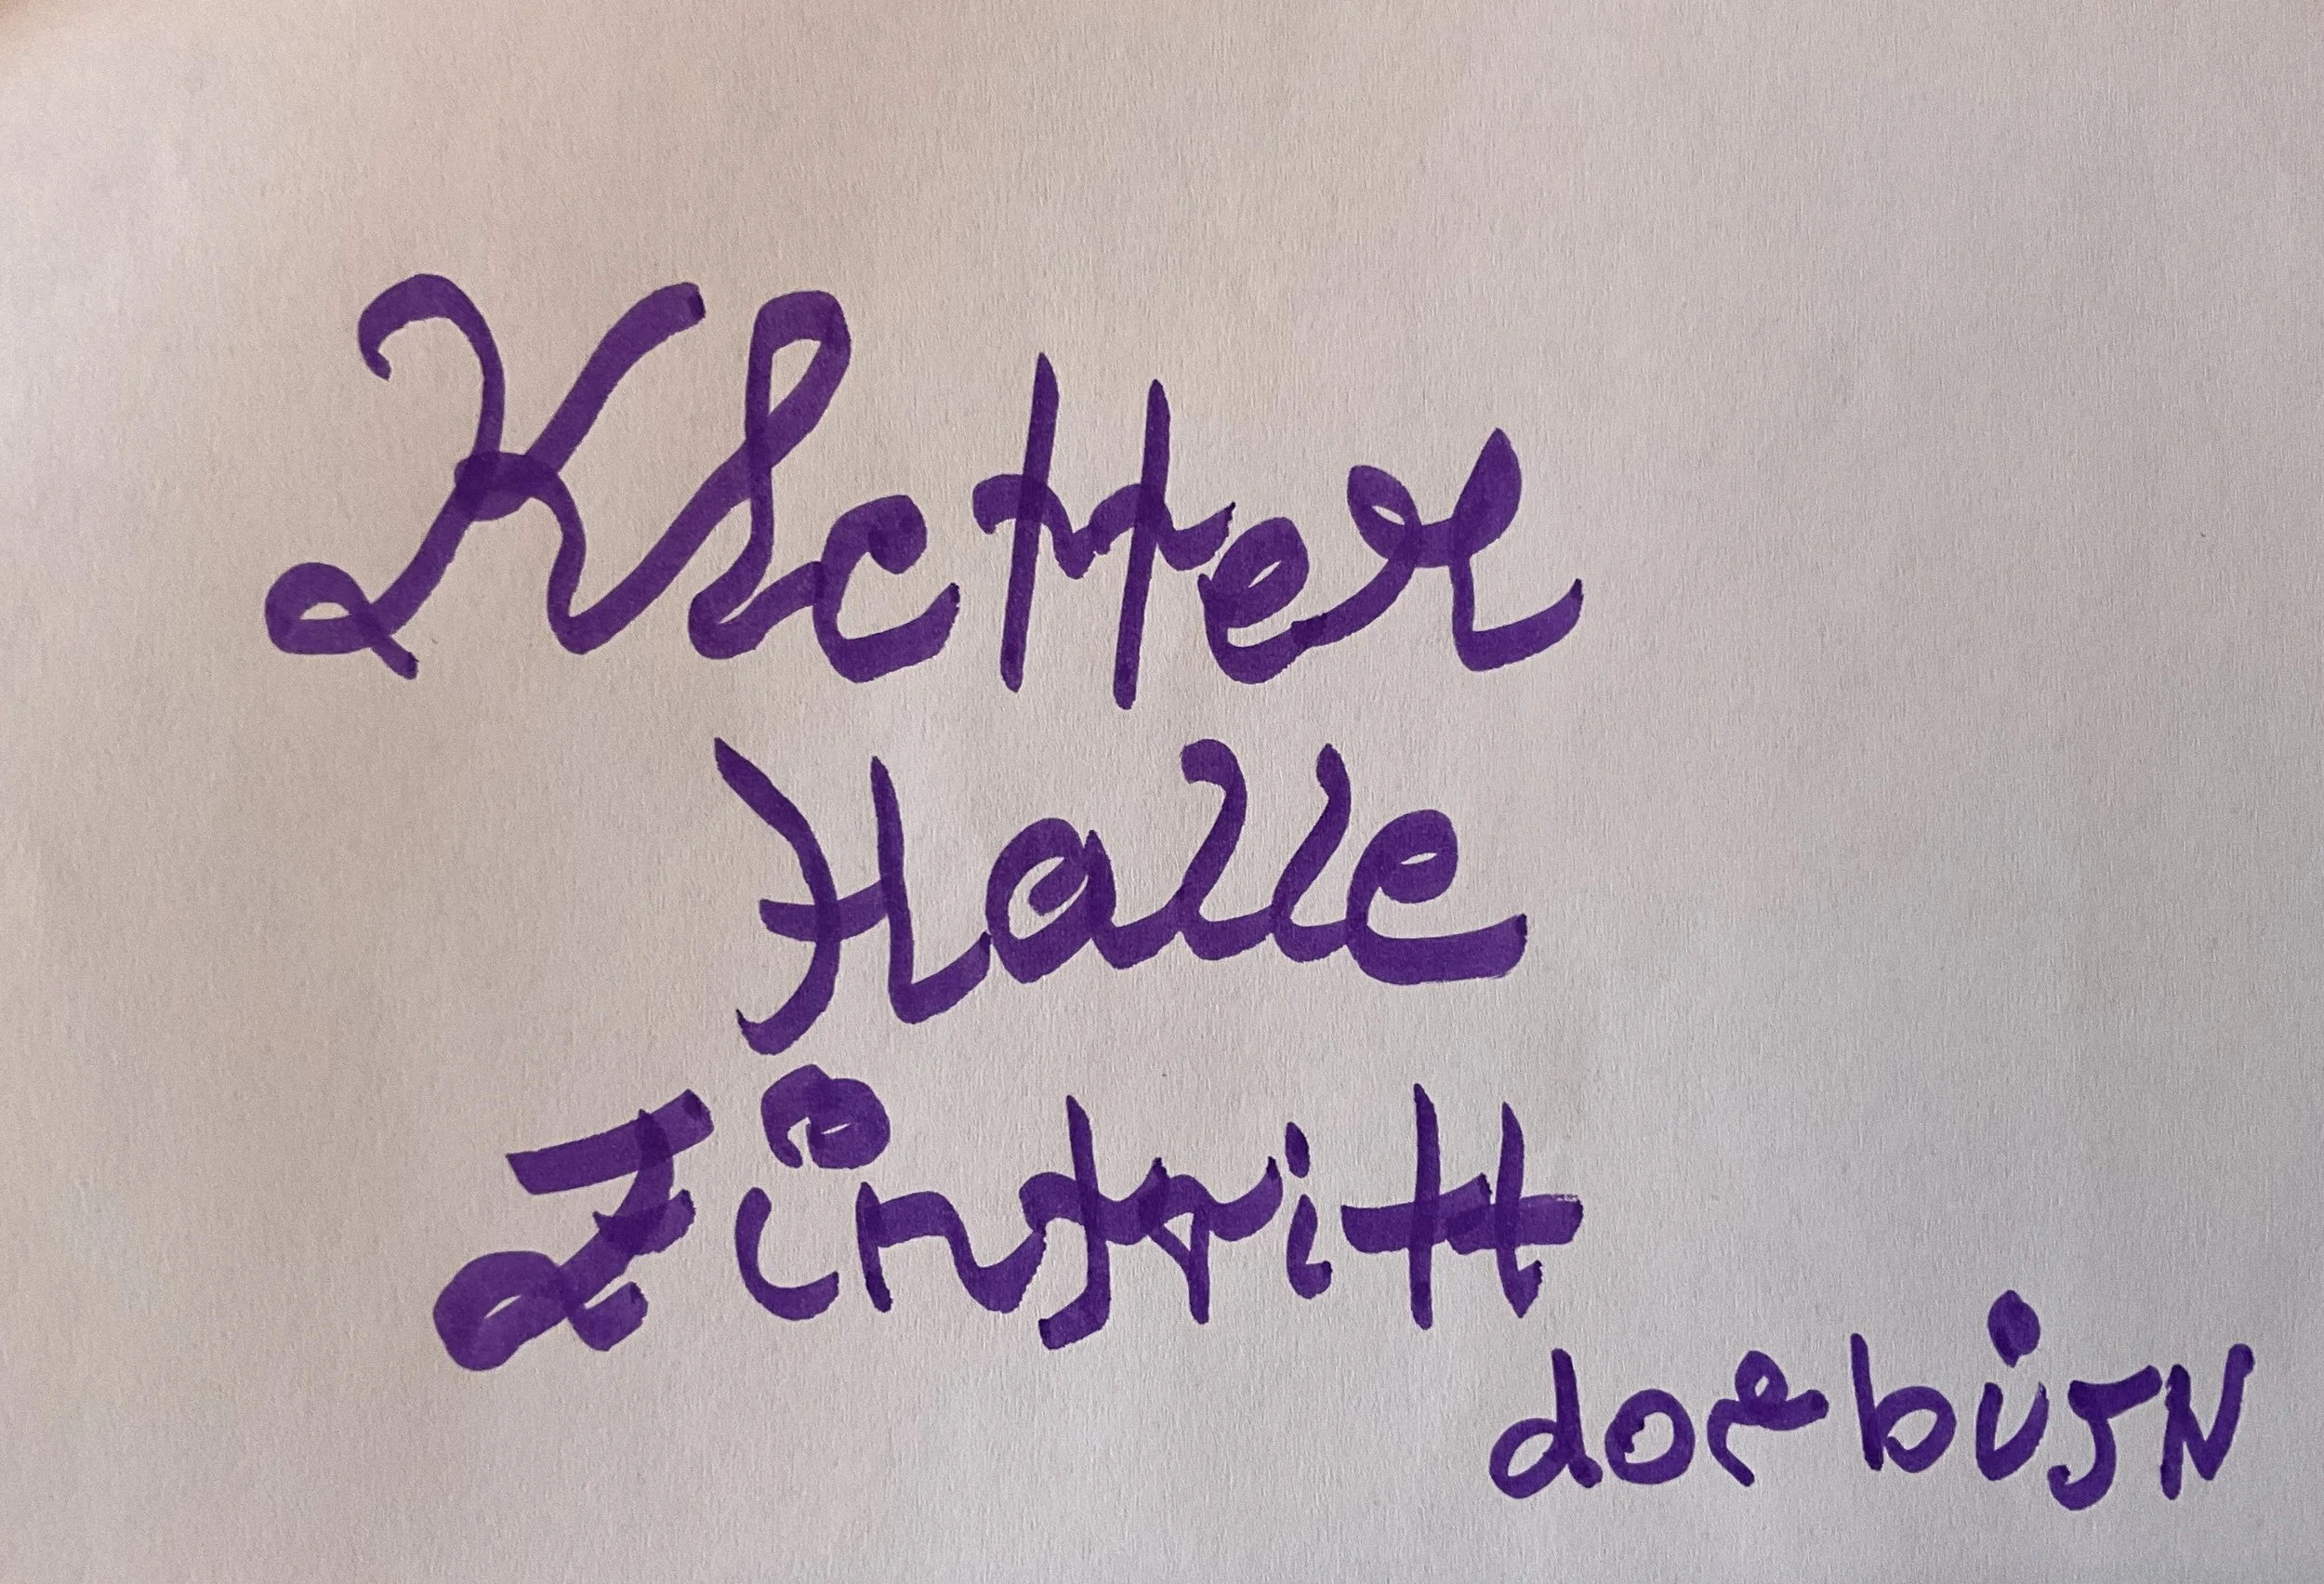 Kletter
Halle
Züntritt
dorbürn